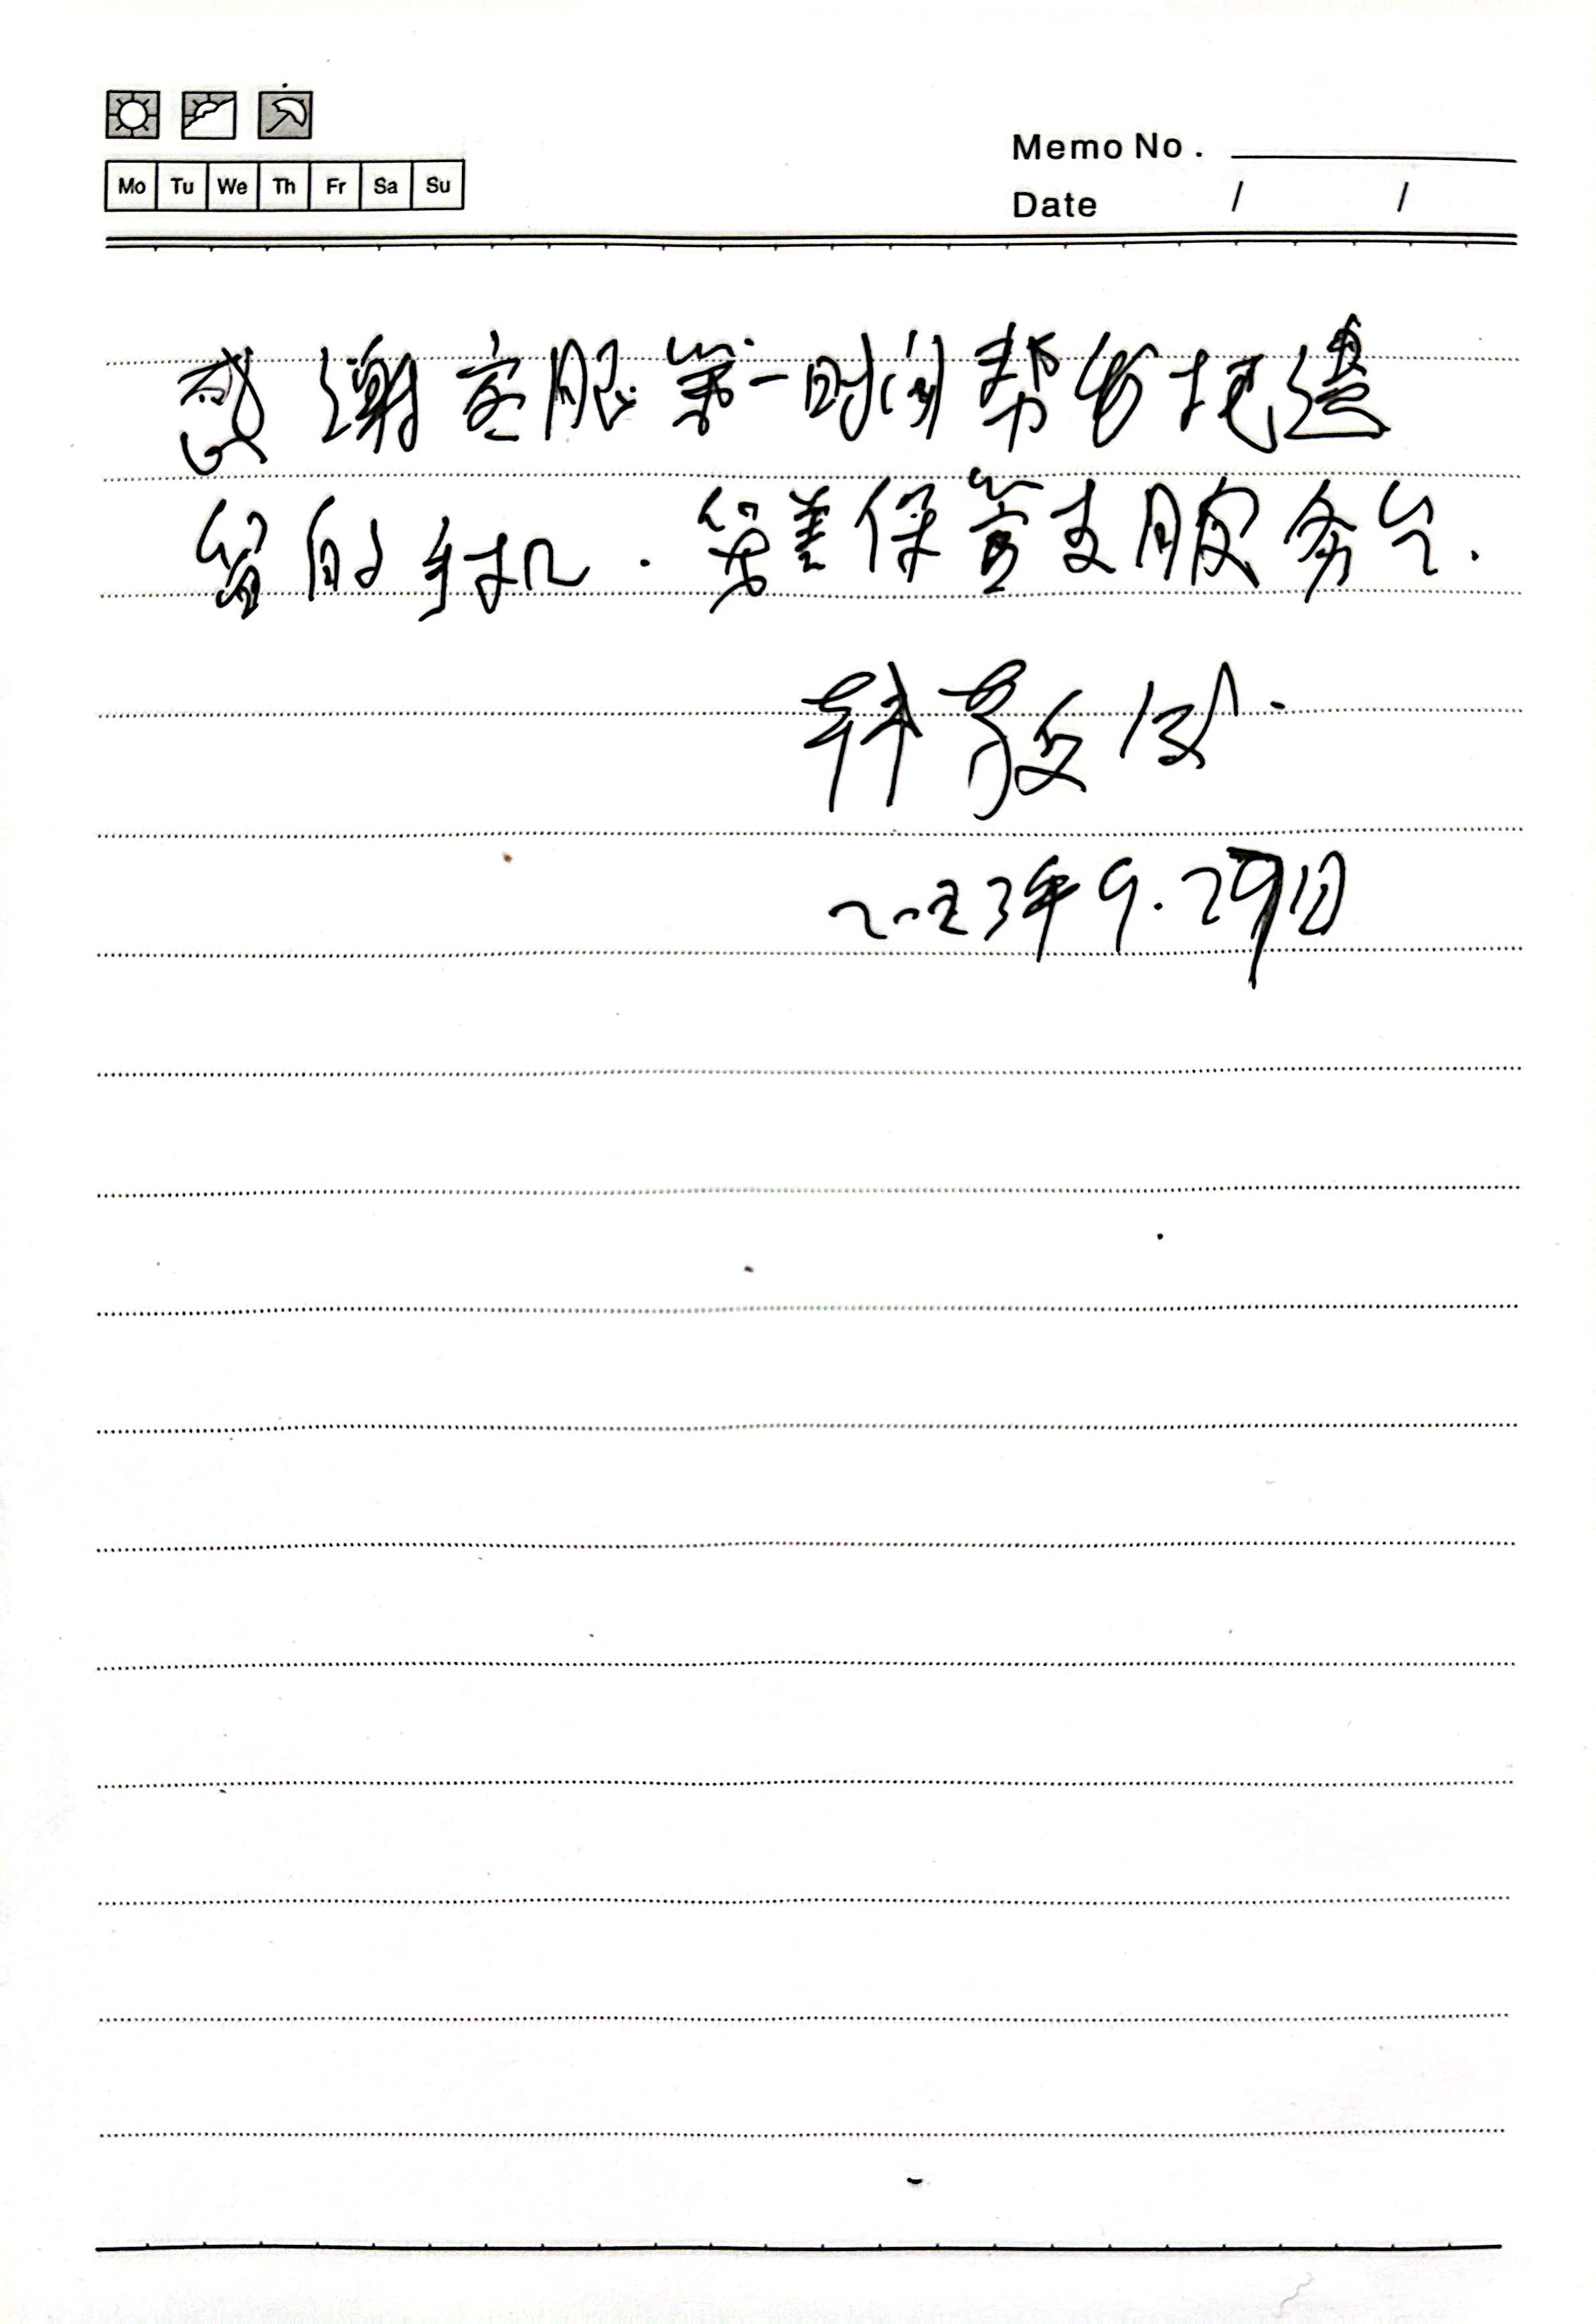 Mo Tu We Th Fr Sa Su
Memo No.
Date / /
感谢客服第一时间帮我把遗
留的手机.妥善保管至服务台.
韩
二〇二3年9.29日